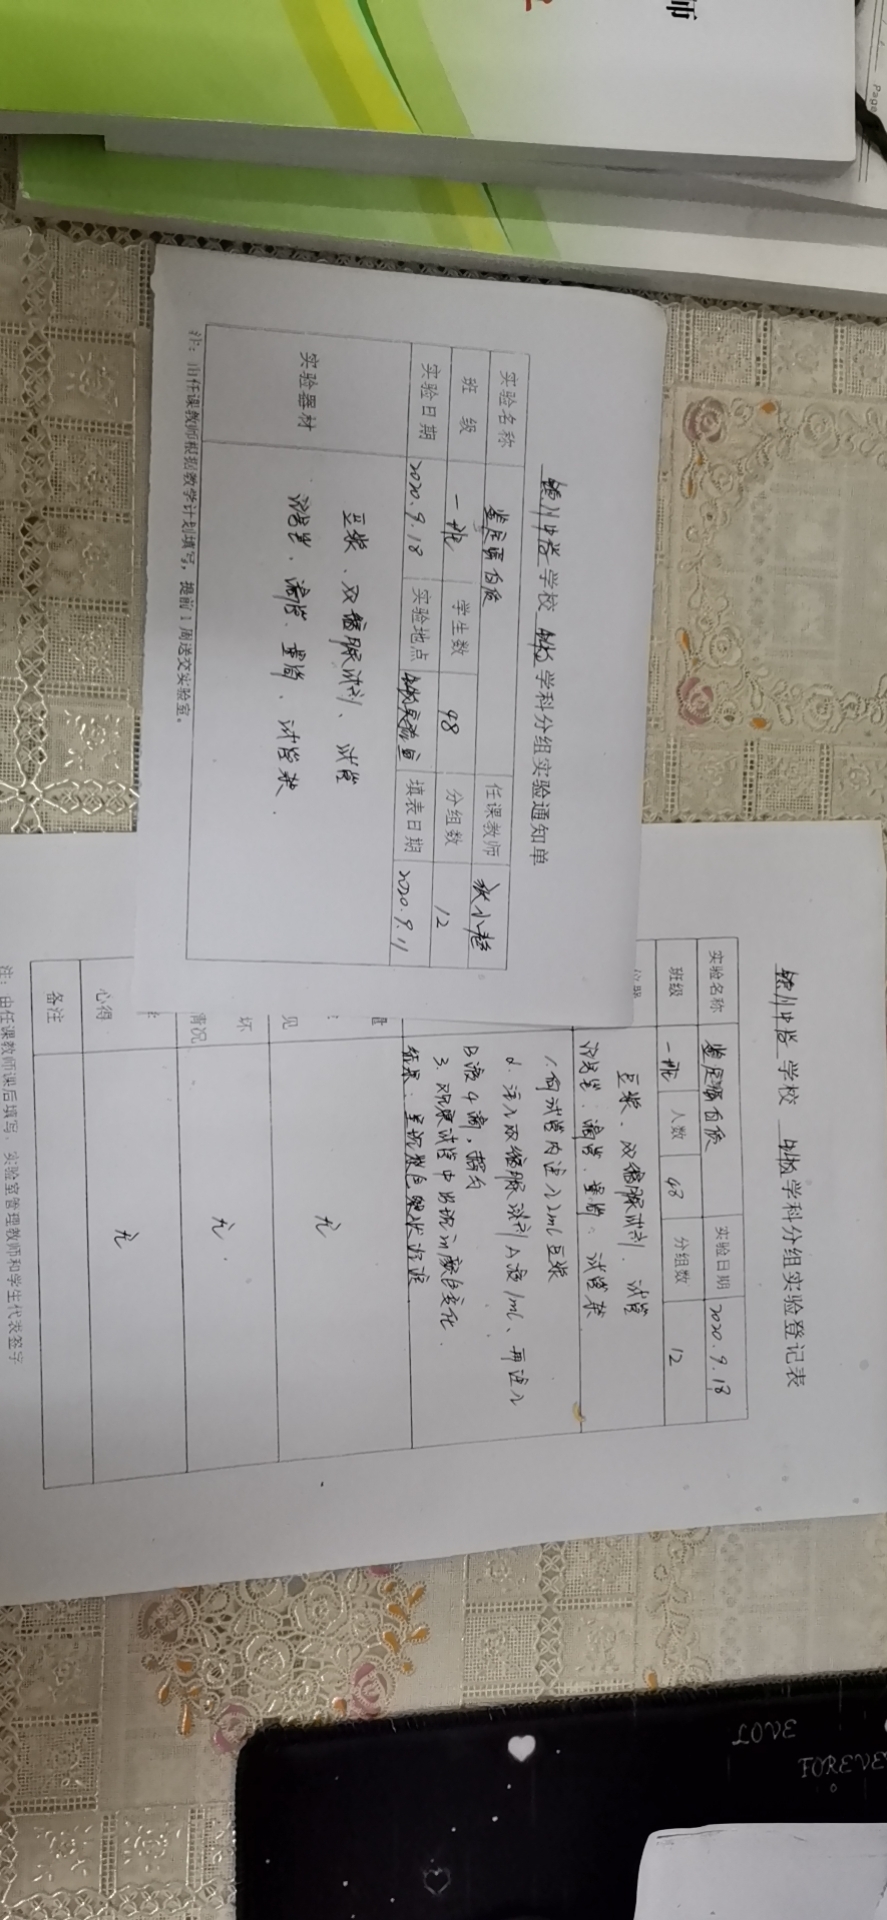 师
Page
学校 生物 学科分组实验通知单
实验名称 鉴定蛋白质 任课教师
班 级 一班 学生数 48 分组数 12
实验日期 2020.9.18 实验地点 生物实验室 填表日期 2020.9.11
实验器材 豆浆、双缩脲试剂、试管
滴管、量筒、试管架.
注：由任课教师根据教学计划填写，提前1周送交实验室。
学校 生物 学科分组实验登记表
实验名称 鉴定蛋白质 实验日期 2020.9.18
班级 一班 人数 48 分组数 12
豆浆、双缩脲试剂、试管
滴管、量筒、试管架
1.向试管内注入2ml豆浆
2.注入双缩脲试剂A液1ml、再注入
B液4滴，摇匀
3.观察试管中出现的颜色变化.
结果：
见 无
坏
情况 无
心得 无
备注
注：由任课教师课后填写，实验室管理教师和学生代表签字
LOVE
FOREVE